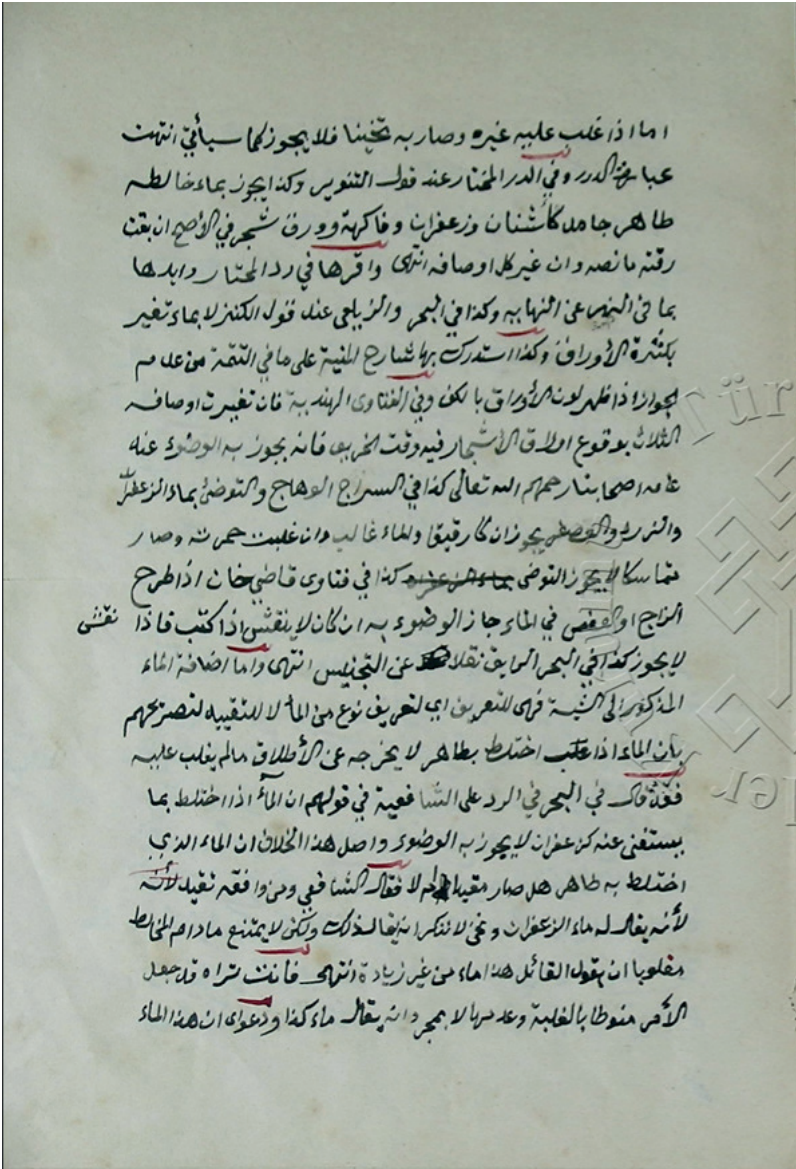 اما اذا غلب عليه غيره وصار به ثخينا فلا يجوز كما سيأتي انتهت
عبارة الدرر وفي الدر المختار عند قول التنوير وكذا يجوز بماء خالطه
طاهر جامد كأشنان وزعفران وفاكهة وورق شجر في الأصح ان بقت
رقته ما نصه وان غير كل اوصافه انتهى واقرها في رد المحتار وايدها
بما في النهر عن النهاية وكذا في البحر والزيلعى عند قول الكنز لا بماء تغير
بكثرة الأوراق وكذا استدرك بها شارح المنية على ما في التتمة من عدم
الجواز اذا ظهر لون الأوراق بالكف وفي الفتاوى الهندية فان تغيرت اوصافه
الثلاث بوقوع اوراق الأشجار فيه وقت الخريف فانه يجوز به الوضوء عند
عامة اصحابنا رحمهم الله تعالى كذا في السراج الوهاج والتوضئ بماء الزعفران
والزردج والعصفر يجوز ان كان رقيقا والماء غالب وان غلبت حمرته وصار
متماسكا لا يجوز التوضى كذا في فتاوى قاضي خان اذا طرح
الزاج او العفص في الماء جاز الوضوء به ان كان لا ينقش اذا كتب فاذا نقش
لا يجوز كذا في البحر الرايق نقلا عن التجنيس انتهى واما اضافة الماء
المذكور الى فهى للتعريف اي لتعريف نوع من الماء لا للتقييد لتصريحهم
بأن الماء اذا اختلط بطاهر لا يخرجه عن الأطلاق مالم يغلب عليه
فقد قال في البحر في الرد على الشافعية في قولهم ان الماء اذا اختلط بما
يستغنى عنه كزعفران لا يجوز به الوضوء واصل هذا الخلاف ان الماء الذي
اختلط به طاهر هل صار مقيدا ام لا فقال الشافعي ومن وافقه تقيد لأنه
لأنه يقال له ماء الزعفران ونحن لا ننكر انه يقال ذلك ولكن لا يمتنع مادام المخالط
مغلوبا ان يقول القائل هذا ماء من غير زيادة انتهى فانت تراه قد جعل
الأمر منوطا بالغلبة وعدمها لا بمجرد انه يقال ماء كذا ودعواى ان هذا الماء